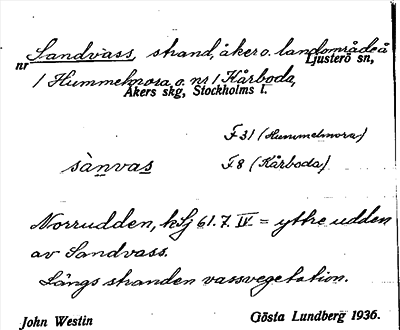 Sandvass, strand, åker o. landområde å
nr Ljusterö sn,
1 Hummelmora o. nr 1 Kårboda,
Åkers skg, Stockholms l.
F 31 (Hummelmora)
sànvas F 8 (Kårboda)
Norrudden, kSj 61.7. IV = yttre udden
av Sandvass.
Längs stranden vassvegetation.
John Westin Gösta Lundberg 1936.